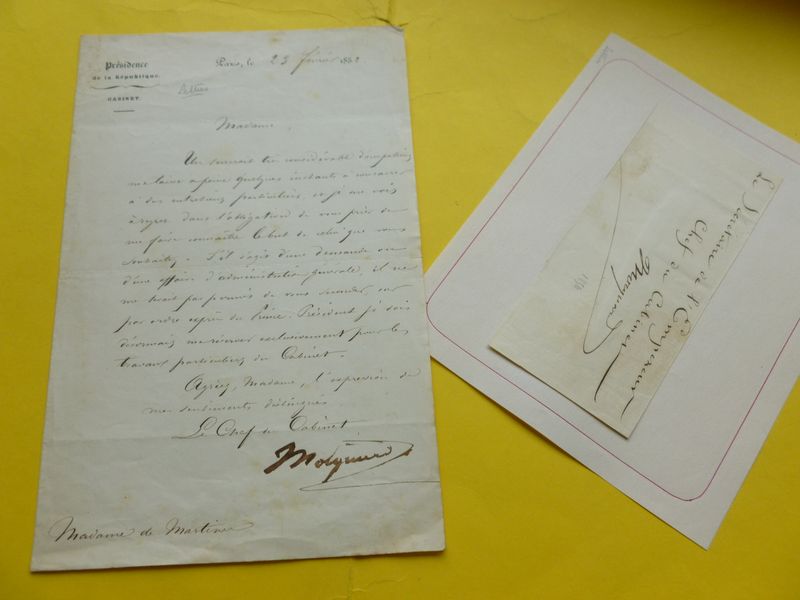 Présidence
de la République.
CABINET.
Paris, le 23 février 1852
Lettres
Madame,
Un surcroit très considérable d'occupations
me laisse à peine quelques instants à consacrer
à des entretiens particuliers, et je me vois
à regret dans l'obligation de vous prier de
me faire connaître le but de celui que vous
souhaitez. S'il s'agit d'une demande ou
d'une affaire d'administration générale, il ne
me serait pas permis de vous seconder, car
par ordre exprès du Prince-Président je dois
désormais me réserver exclusivement pour les
travaux particuliers du Cabinet.
Agréez, Madame, l'expression de
mes sentiments distingués
Le Chef du Cabinet
Mocquard
Madame de
Le Secrétaire de l'Empereur
Chef du Cabinet
Mocquard